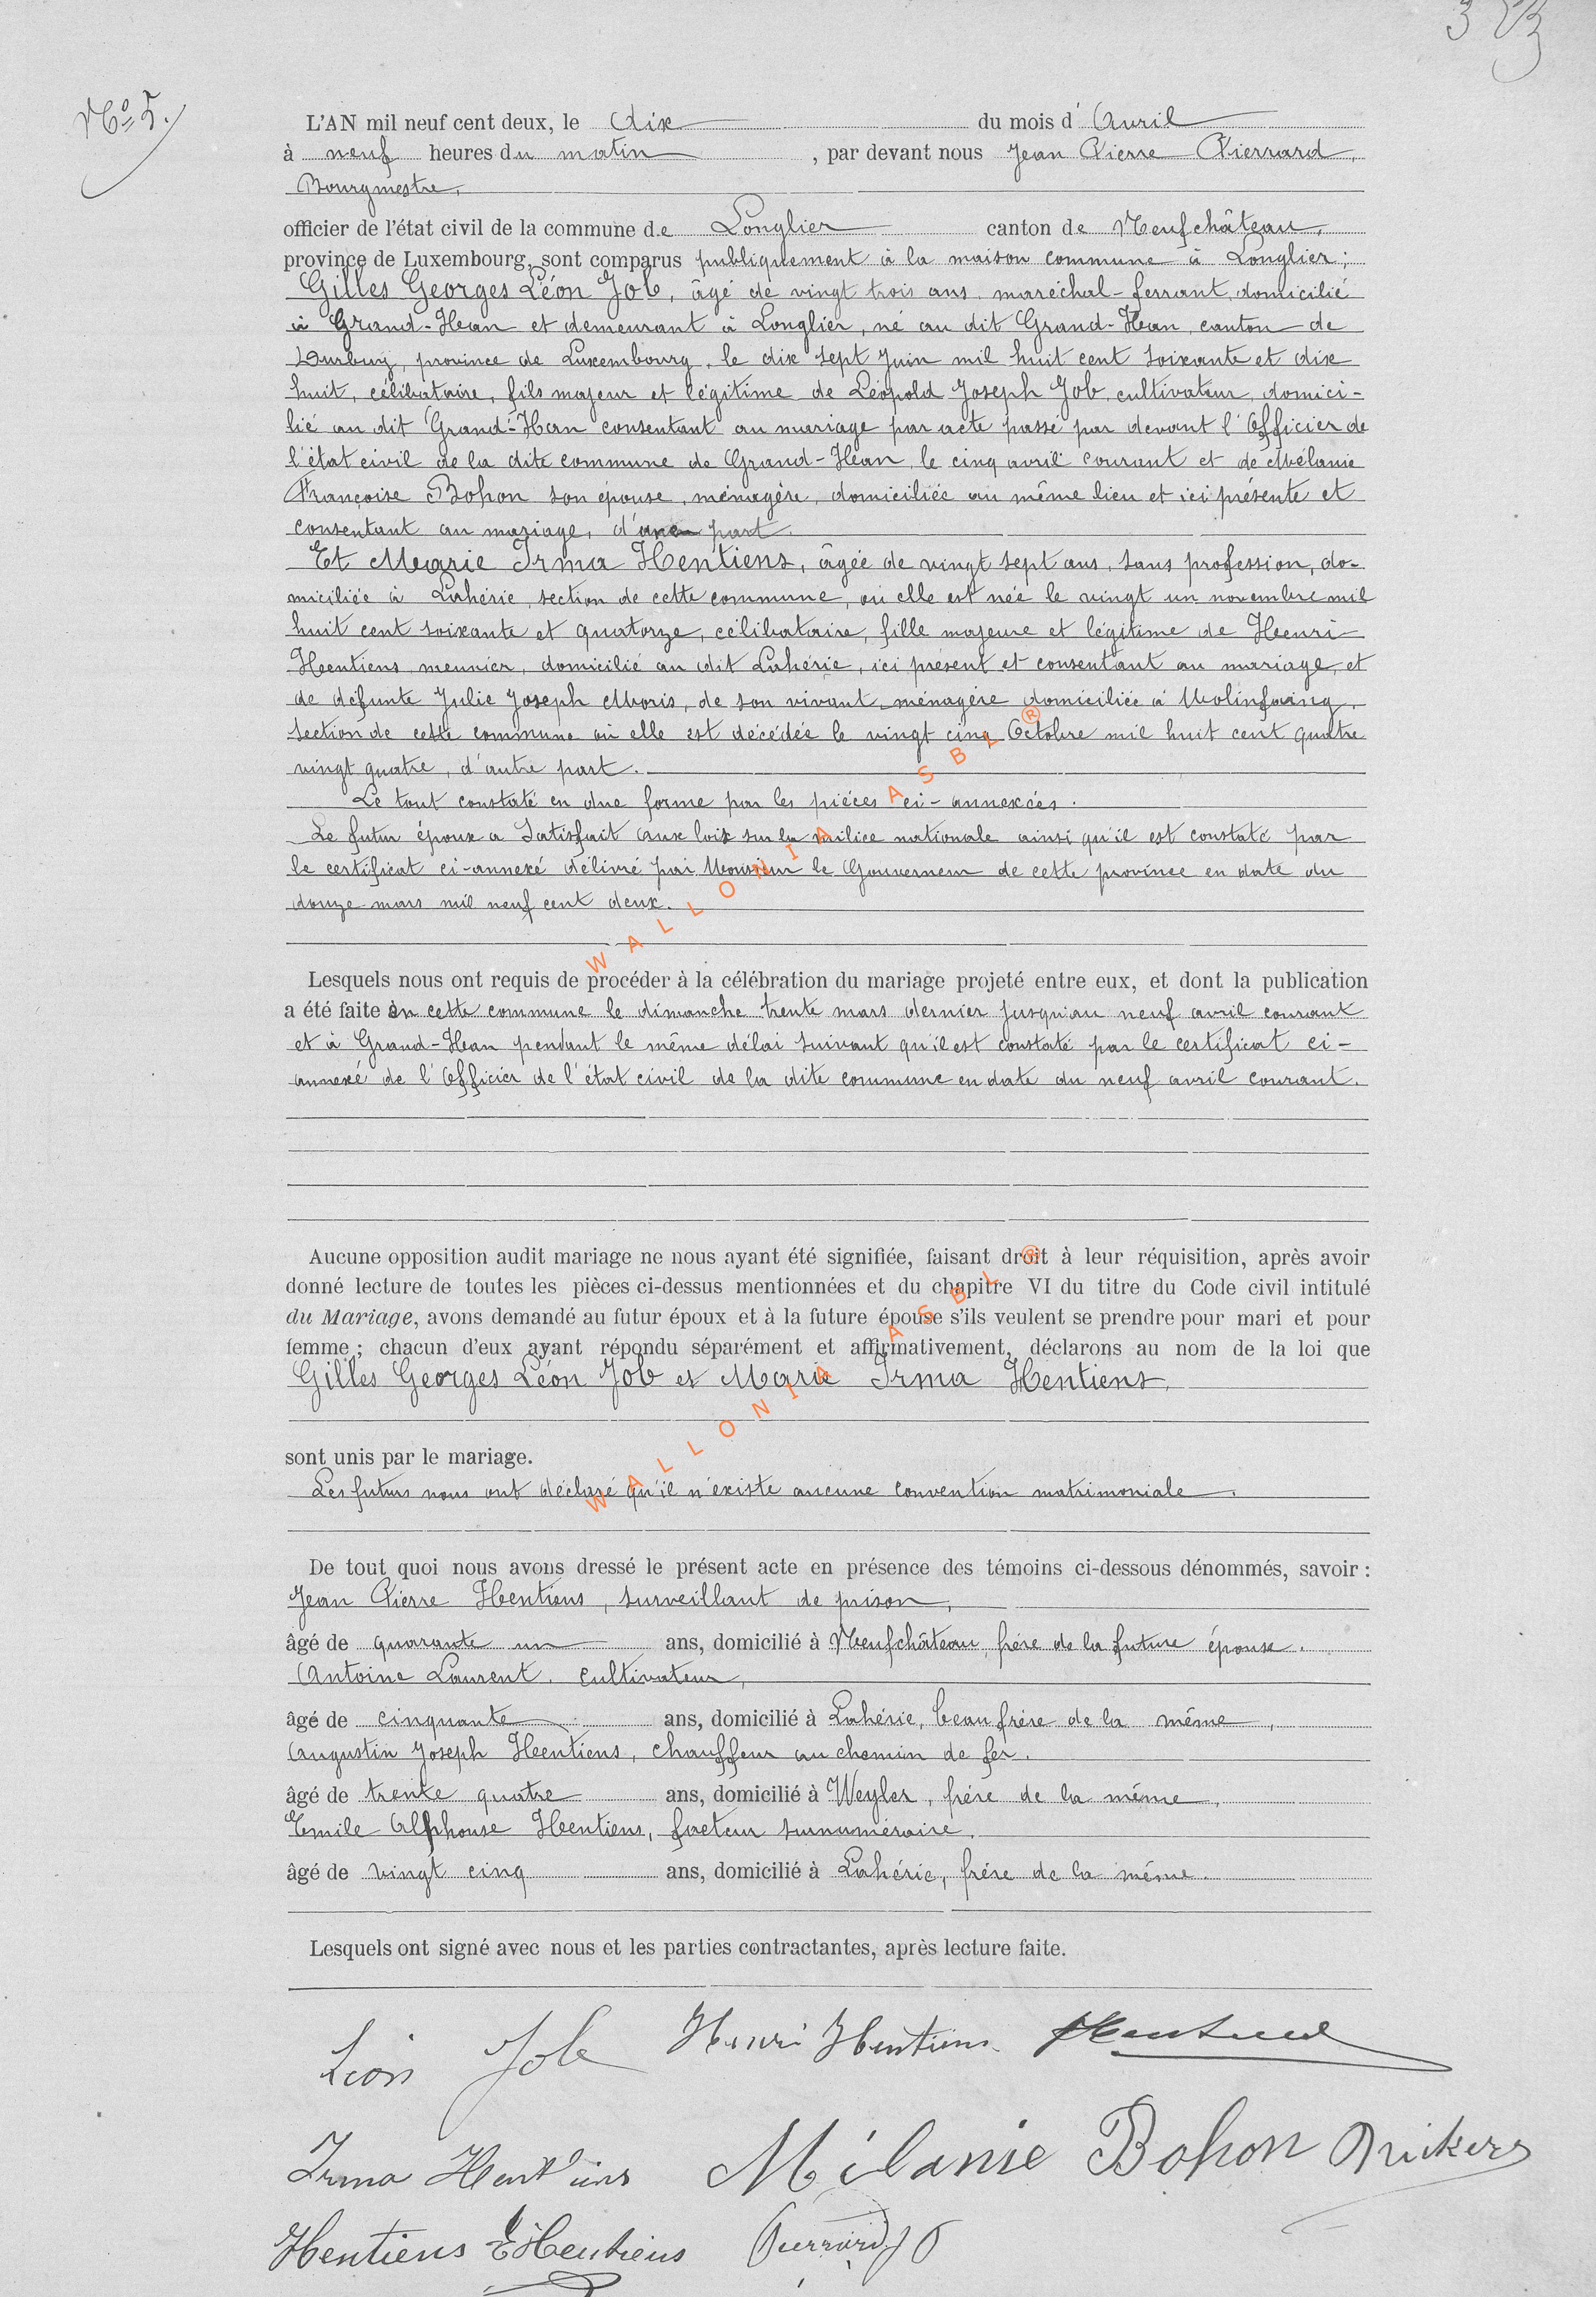 323
No 5.
L'AN mil neuf cent deux, le dix du mois d'Avril
à neuf heures du matin, par devant nous Jean Pierre Pierrard,
Bourgmestre,
officier de l'état civil de la commune de Longlier canton de Neufchâteau,
province de Luxembourg, sont comparus publiquement à la maison commune à Longlier;
Gilles Georges Léon Job, âgé de vingt trois ans, maréchal-ferrant, domicilié
à Grand-Han et demeurant à Longlier, né au dit Grand-Han, canton de
Durbuy, province de Luxembourg, le dix sept Juin mil huit cent soixante et dix
huit, célibataire, fils majeur et légitime de Léopold Joseph Job, cultivateur, domici-
lié au dit Grand-Han consentant au mariage par acte passé par devant l'Officier de
l'état civil de la dite commune de Grand-Han, le cinq avril courant et de Mélanie
Françoise Bohon son épouse, ménagère, domiciliée au même lieu et ici présente et
consentant au mariage, d'une part.
Et Marie Irma Hentiens, âgée de vingt sept ans, sans profession, do-
miciliée à Lahérie, section de cette commune, où elle est née le vingt un novembre mil
huit cent soixante et quatorze, célibataire, fille majeure et légitime de Henri
Hentiens, meunier, domicilié au dit Lahérie, ici présent et consentant au mariage, et
de défunte Julie Joseph Moris, de son vivant ménagère domiciliée à Molinfaing,
section de cette commune où elle est décédée le vingt cinq Octobre mil huit cent quatre
vingt quatre, d'autre part.
Le tout constaté en due forme par les pièces ci-annexées.
Le futur époux a satisfait aux lois sur la milice nationale ainsi qu'il est constaté par
le certificat ci-annexé délivré par Monsieur le Gouverneur de cette province en date du
douze mars mil neuf cent deux.
WALLONIA ASBL ®
Lesquels nous ont requis de procéder à la célébration du mariage projeté entre eux, et dont la publication
a été faite en cette commune le dimanche trente mars dernier jusqu'au neuf avril courant
et à Grand-Han pendant le même délai suivant qu'il est constaté par le certificat ci-
annexé de l'Officier de l'état civil de la dite commune en date du neuf avril courant.
Aucune opposition audit mariage ne nous ayant été signifiée, faisant droit à leur réquisition, après avoir
donné lecture de toutes les pièces ci-dessus mentionnées et du chapitre VI du titre du Code civil intitulé
du Mariage, avons demandé au futur époux et à la future épouse s'ils veulent se prendre pour mari et pour
femme ; chacun d'eux ayant répondu séparément et affirmativement, déclarons au nom de la loi que
Gilles Georges Léon Job et Marie Irma Hentiens,
WALLONIA ASBL ®
sont unis par le mariage.
Les futurs nous ont déclaré qu'il n'existe aucune convention matrimoniale.
De tout quoi nous avons dressé le présent acte en présence des témoins ci-dessous dénommés, savoir :
Jean Pierre Hentiens, surveillant de prison,
âgé de quarante un ans, domicilié à Neufchâteau, frère de la future épouse.
Antoine Laurent, cultivateur,
âgé de cinquante ans, domicilié à Lahérie, beau frère de la même,
Augustin Joseph Hentiens, chauffeur au chemin de fer.
âgé de trente quatre ans, domicilié à Weyler, frère de la même,
Emile Alphonse Hentiens, facteur surnuméraire,
âgé de vingt cinq ans, domicilié à Lahérie, frère de la même.
Lesquels ont signé avec nous et les parties contractantes, après lecture faite.
Léon Job Henri Hentiens
Irma Hentiens Mélanie Bohon
Hentiens E Hentiens Pierrard J P